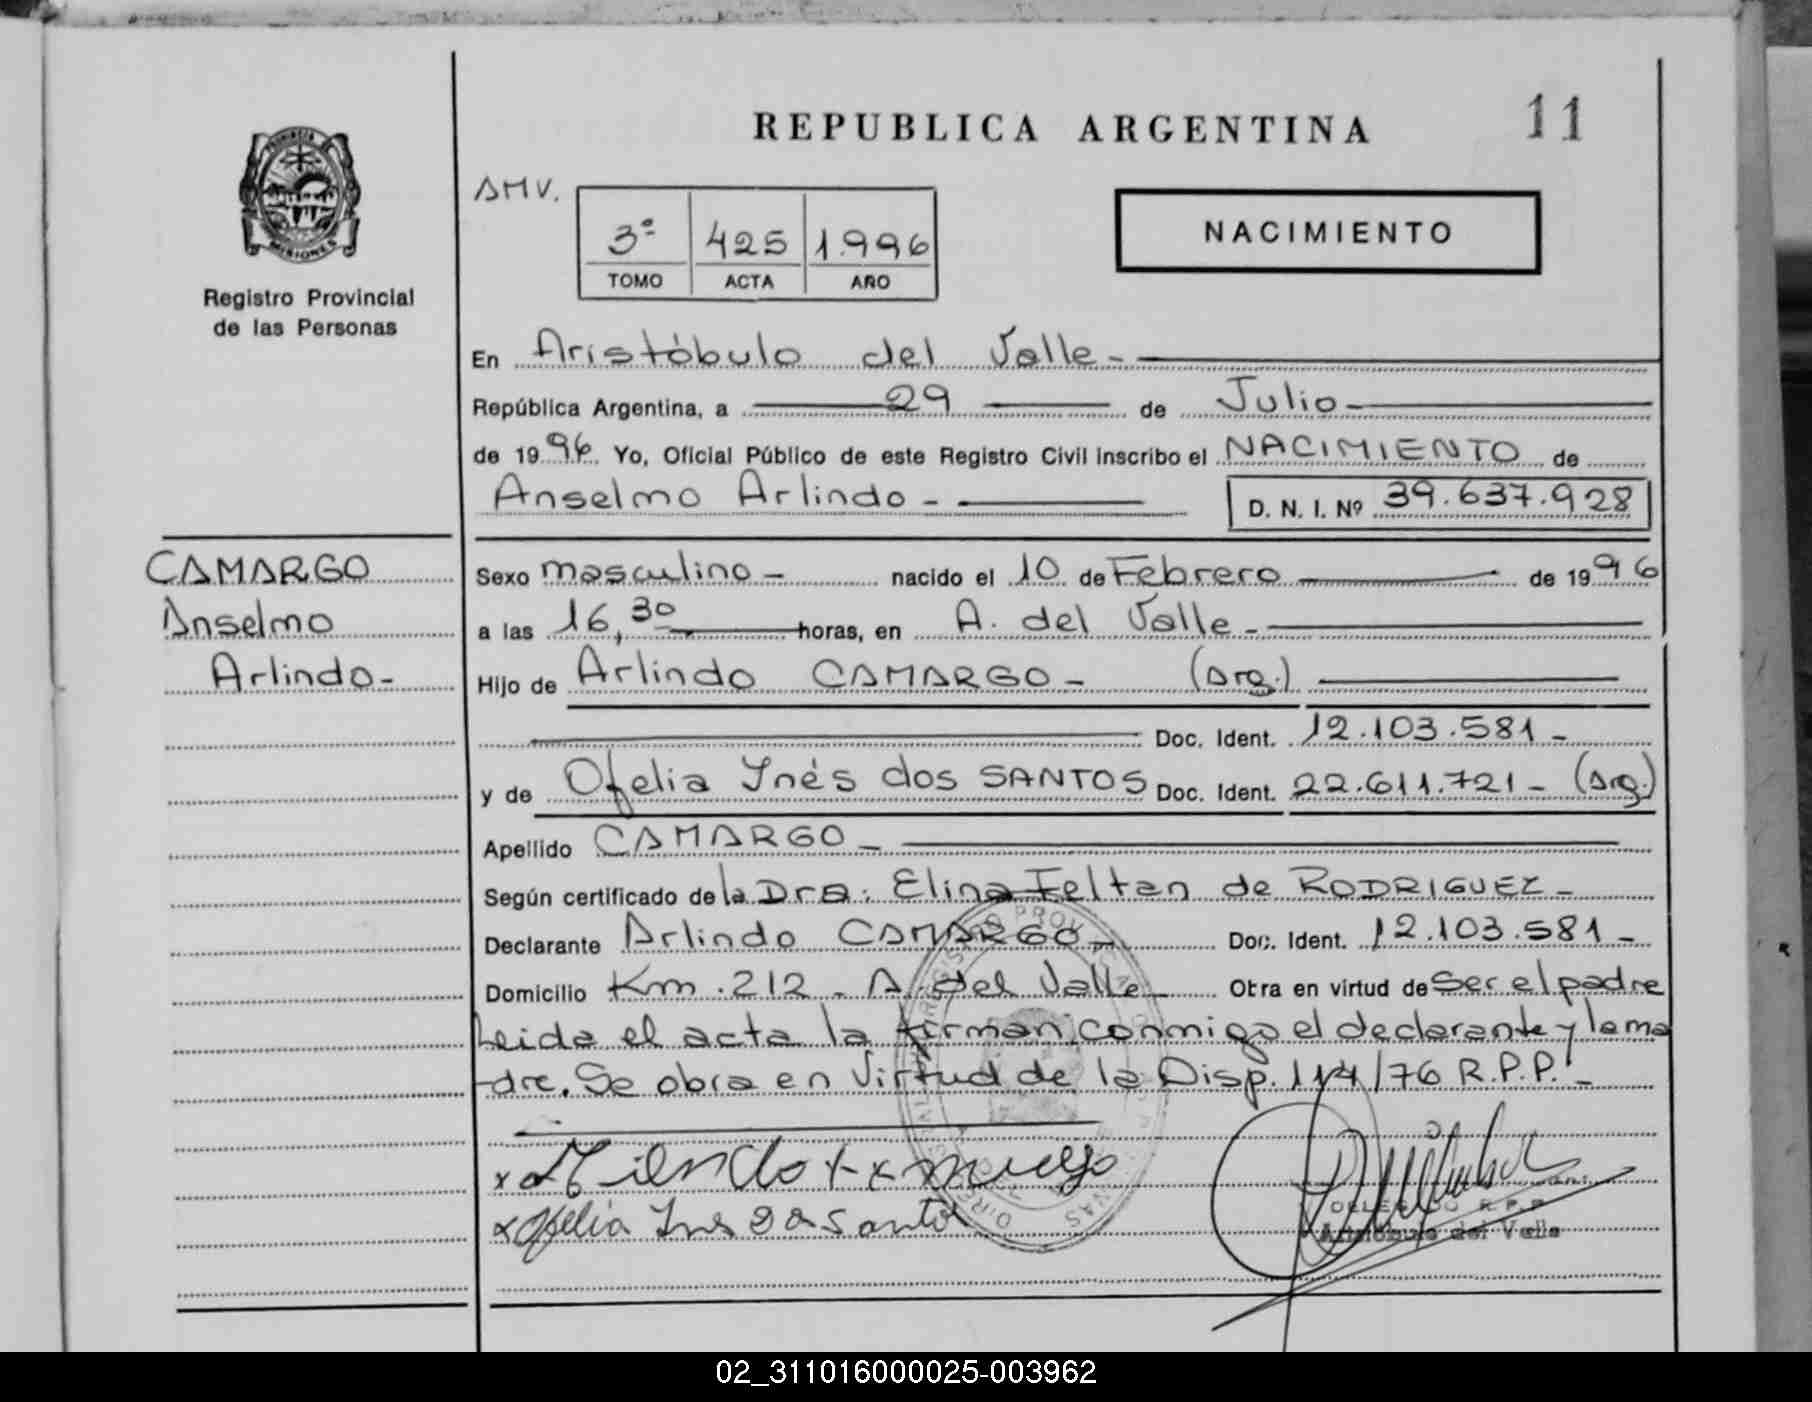 REPUBLICA ARGENTINA 11
PROVINCIA DE MISIONES
Registro Provincial
de las Personas
AMV.
3º 425 1.996
TOMO ACTA AÑO
NACIMIENTO
En Aristóbulo del Valle -
República Argentina, a 29 de Julio -
de 19 96 Yo, Oficial Público de este Registro Civil inscribo el NACIMIENTO de
Anselmo Arlindo - D. N. I. Nº 39.637.928
CAMARGO
Anselmo
Arlindo -
Sexo masculino - nacido el 10 de Febrero de 19 96
a las 16,30 horas, en A. del Valle -
Hijo de Arlindo CAMARGO - (Arg.)
Doc. Ident. 12.103.581 -
y de Ofelia Ynés dos SANTOS Doc. Ident. 22.611.721 - (Arg.)
Apellido CAMARGO -
Según certificado de la Dra: Elina Feltan de RODRIGUEZ -
Declarante Arlindo CAMARGO - Doc. Ident. 12.103.581 -
Domicilio Km. 212 - A. del Valle - Obra en virtud de Ser el padre
Leida el acta la firman conmigo el declarante y la ma
dre. Se obra en Virtud de la Disp. 114/76 R.P.P. -
Ofelia
DELEGADO R.P.P.
Aristóbulo del Valle
02_311016000025-003962